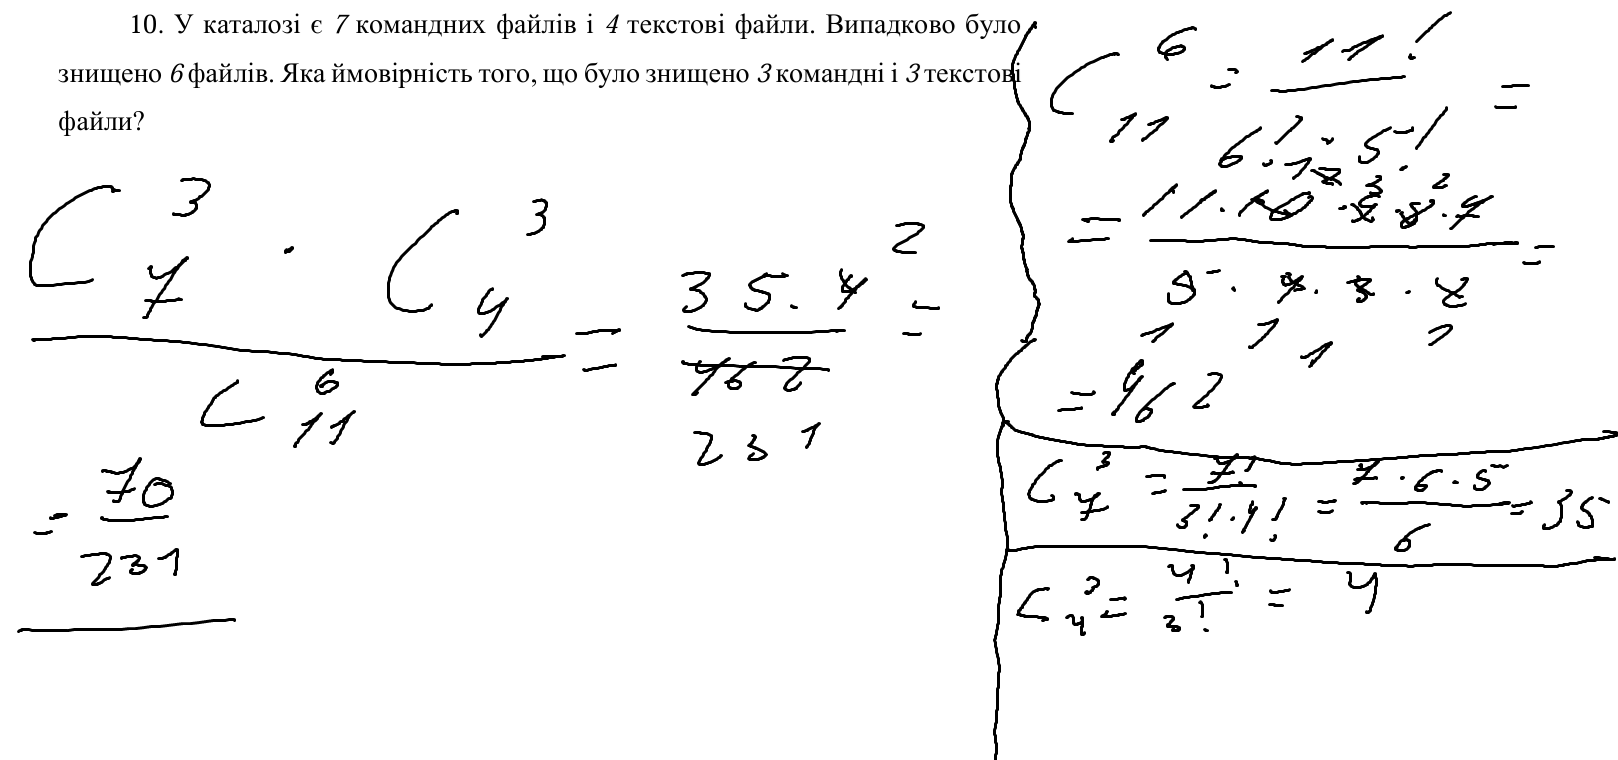 10. У каталозі є 7 командних файлів і 4 текстові файли. Випадково було
знищено 6 файлів. Яка ймовірність того, що було знищено 3 командні і 3 текстові
файли?
C 3 7 · C 3 4
C 6 11
= 35 · 4 2
462
231
=
= 70
231
C 6 11 = 11!
6! · 5!
=
= 11 · 10 · 9 3 · 8 2 · 7
5 · 4 · 3 · 2
1 1 1 1
=
= 462
C 3 7 = 7!
3! · 4!
= 7 · 6 · 5
6
= 35
C 3 4 = 4!
3!
= 4